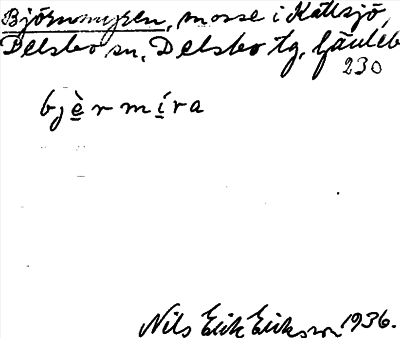 Björnmyren, mosse i Kallsjö,
Delsbo sn, Delsbo tg, Gävleb
230
bjè̱r mí̱ra
Nils Erik Eriksson 1936.